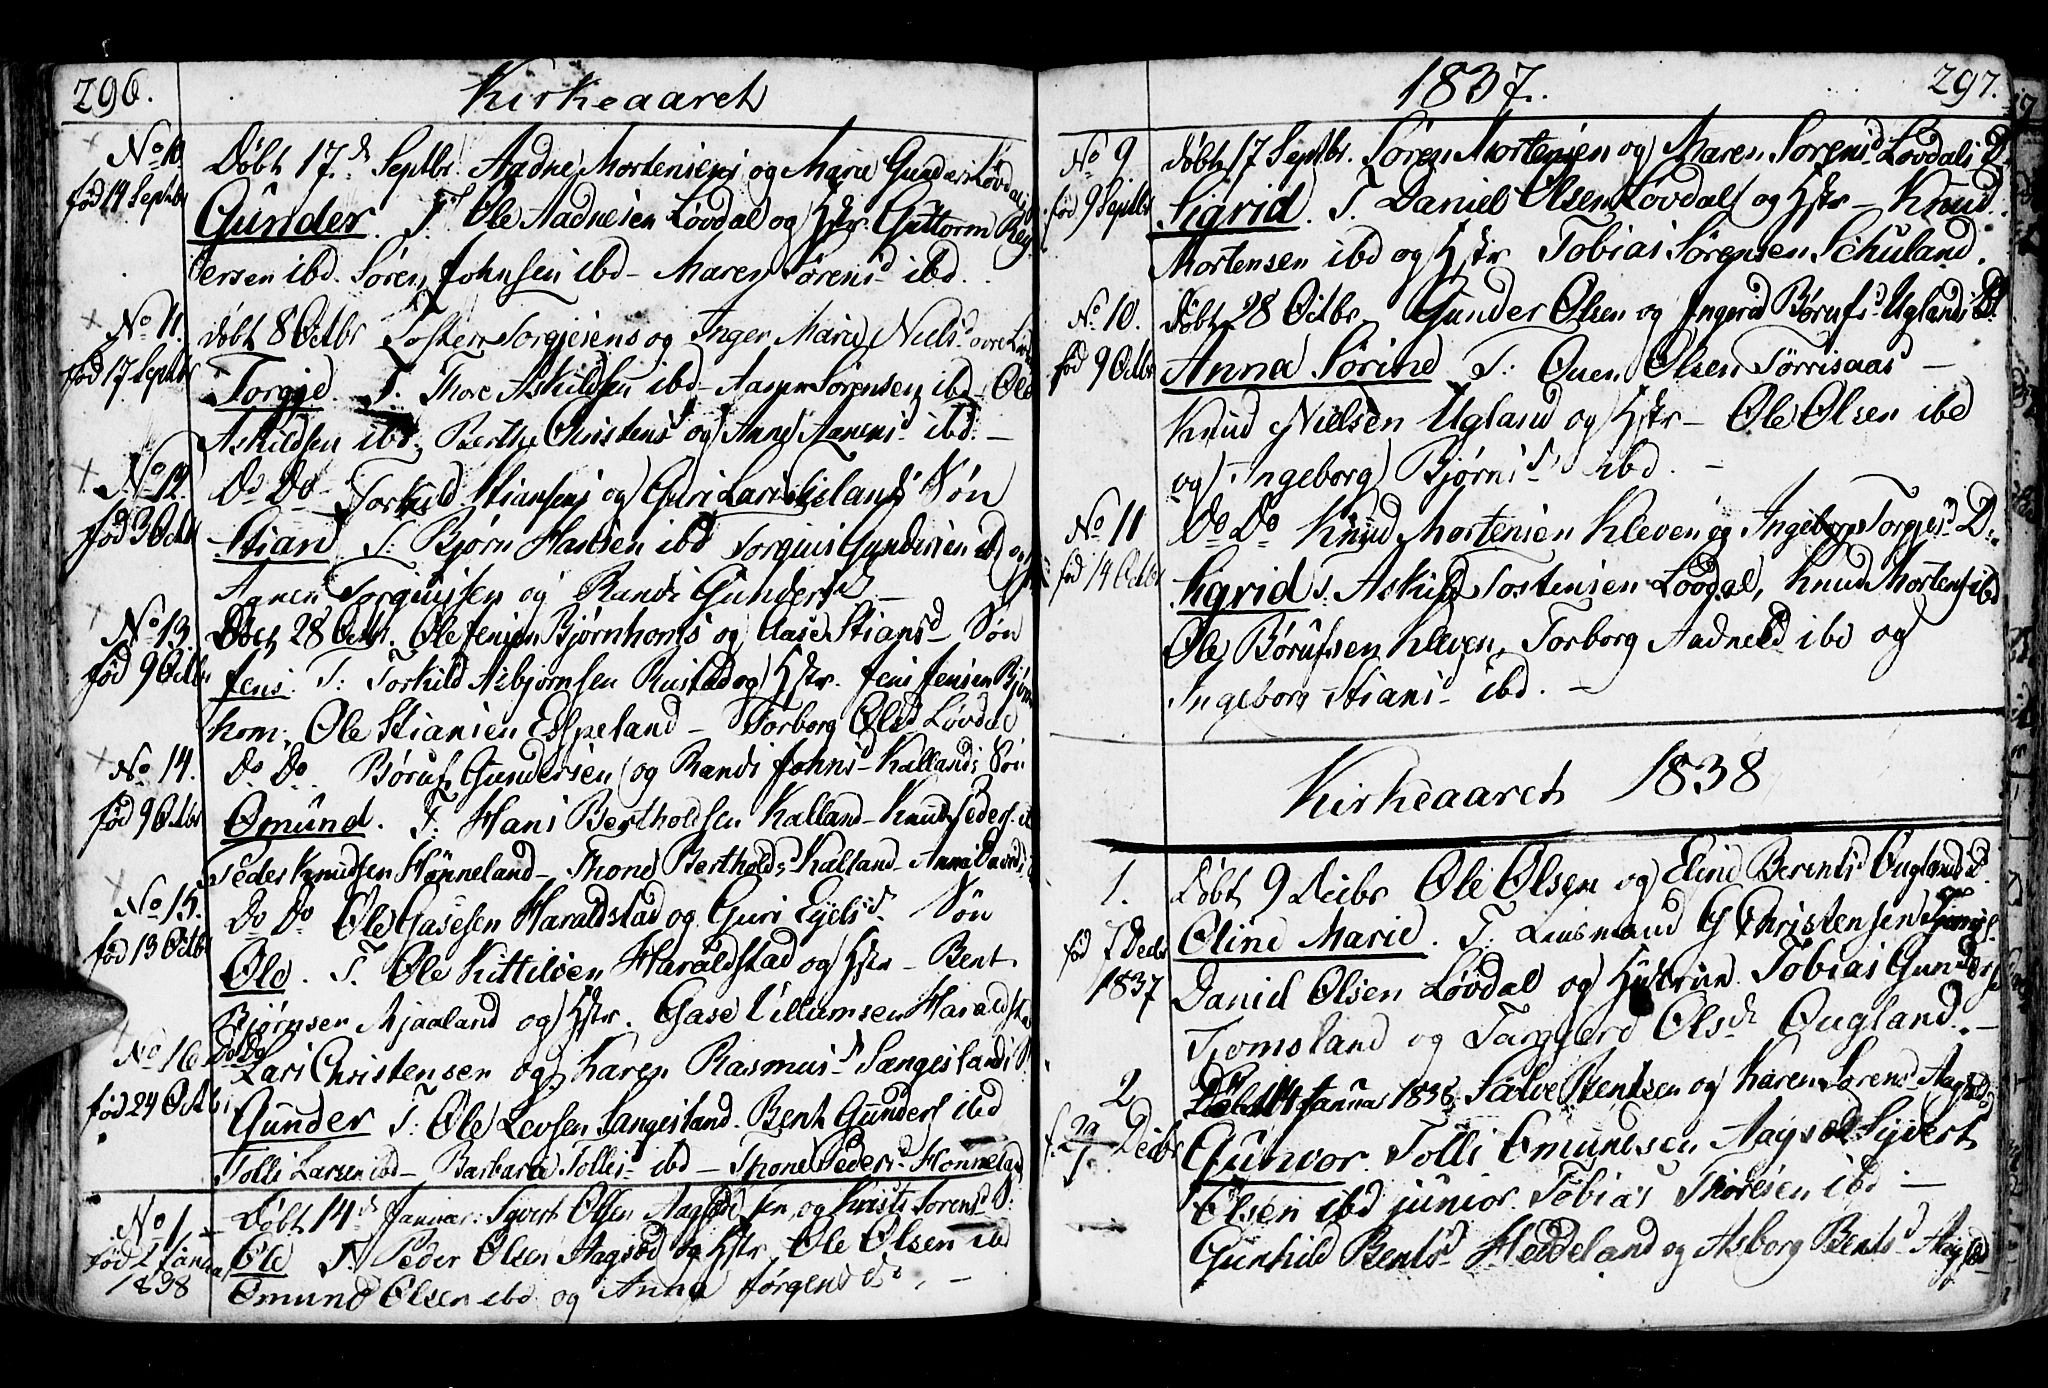 296.
Kirkeaaret
No 10
fød 14 Septbr
Døbt 17.d Septbr. Aadne Mortensens og Marie Gunders Løvdals
Gunder. T. Ole Aadnesen Løvdal og Hstr. Guttorm
ersen ibd. Søren Johnsen ibd - Maren Sørensd ibd.
No 11.
fød 17 Septbr
døbt 8 Octbr Tosten Torgiesens og Inger Marie Nielsd
Torgie. T. Thore Askildsen ibd - Aanen Sørensen ibd - Ole
Askildsen ibd, Berthe Christensd og Anne Aanensd ibd. -
No 12.
fød 3 Octb
Do Do - Torkild Stiansens og Guri Larsd Søn
Stian T: Bjørn Hansen ibd Torgius Gundersen ibd og
Aanen Torgiussen og Randi Gundersd -
No 13.
fød 9 Octbr
Døbt 28 Octbr. Ole Jensen Bjørnhoms og Aase Stiansd Søn
Jens. T: Torkild Asbjørnsen Rustad og Hstr. Jens Jensen Bjørn
hom, Ole Stiansen Espeland - Torborg Olsd Løvdal
No 14.
fød 9 Octbr
Do Do. Børuf Gundersen og Randi Johnsd Kallands Søn
Omund. T: Hans Bertholdsen Kalland - Knud Peders.
Peder Knudsen Hønneland - Thone Bertholdsd Kalland - Anne
No 15.
fød 13 Octbr
Do Do Ole Gasesen Haraldstad og Guri Ejelsd. Søn
Ole. T. Ole Kittilsen Haraldstad og Hstr - Bent
Bjørnsen Mjaaland og Hstr. Gase Villumsen Haraldsta
No 16
fød 24 Octbr
Do Do
Lars Christensen og Karen Rasmusd Sangeslands S.
Gunder T: Ole Levsen Sangesland. Bent Gunders ibd
Tolli Larsen ibd - Barbara Tollisd ibd - Thone Pedersd Honneland
No 1.
fød 2 Janua
1838
Døbt 14d Januar: Syvert Olsen Aagsæd Sen, og Kirsti Sørensd S:
Ole T. Peder Olsen Aagsæd og Hstr, Ole Olsen ibd
Omund Olsen ibd og Anna Jørgensd do. -
1837.
297.
No 9
fød 9 Septbr
døbt 17 Septbr. Søren Mortensen og Maren Sørensd Løvdals D.
Sigrid. T. Daniel Olsen Løvdal og Hstr - Knud
Mortensen ibd og Hstr Tobias Sørensen Schuland.
No 10.
fød 9 Octbr
døbt 28 Octbr. Gunder Olsen og Ingerd Børufsd Uglands D.
Anna Sørine T: Ouen Olsen Tørrisaas -
Knud Nielsen Ugland og Hstr - Ole Olsen ibd
og Ingeborg Bjørnsd ibd. -
No 11
fød 14 Octbr
Do Do Knud Mortensen Kleven og Ingeborg Torgjesd D.
Sigrid T: Askild Tostensen Løvdal, Knud Mortens ibd
Ole Børufsen Kleven, Torborg Aadnesd ibd og
Ingeborg Stiansd ibd. -
Kirkeaaret 1838
1.
fød 7 Decbr
1837
Døbt 9 Decbr Ole Olsen og Eline Berentsd Ouglands D.
Oline Marie. T. Lensmand G Christensen
Daniel Olsen Løvdal og Hustrue Tobias Gunders
Tjomsland og Targjerd Olsd Ougland. -
2
f. 29 Decbr
Døbt 14 Januar 1838 Salve Bentsen og Karen Sørensd Aagsæd
Gunvor. Tolli Omundsen Aagsæd Syvert
Olsen ibd junior. Tobias Thoresen ibd -
Gunhild Bentsd Heddeland og Asborg Bentsd Aagsæd